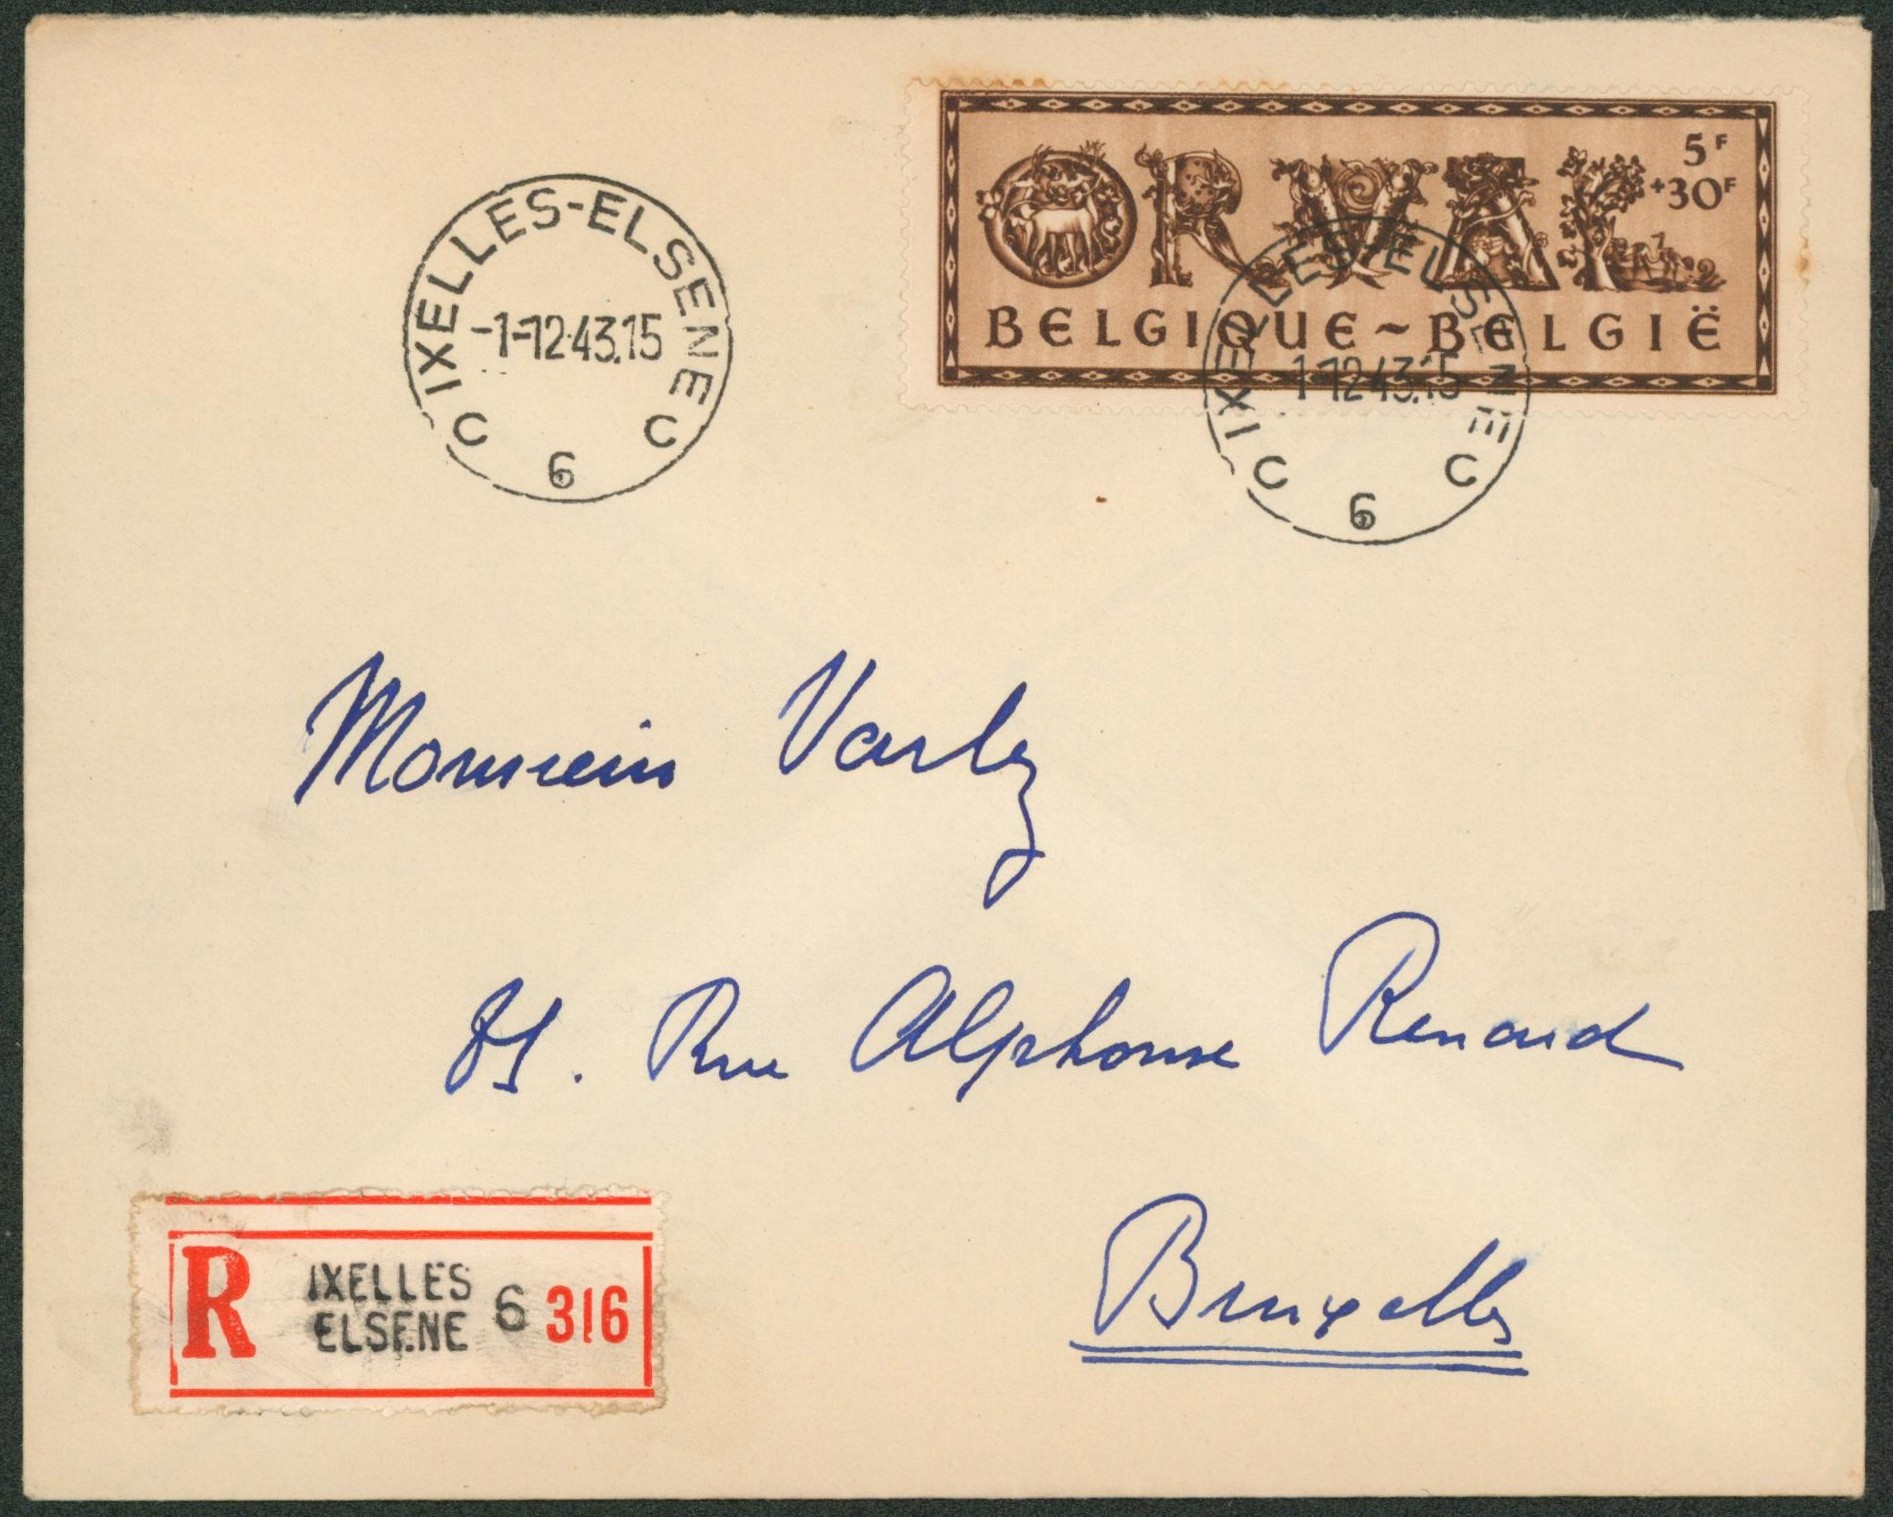 IXELLES-ELSENE
-1-12-43.15
C 6 C
ORVAL
5F
+30F
BELGIQUE~BELGIË
IXELLES-ELSENE
1-12-43.15
C 6 C
Monsieur Varlez
Rue Alphonse Renard
Bruxelles
R IXELLES
ELSENE 6 316